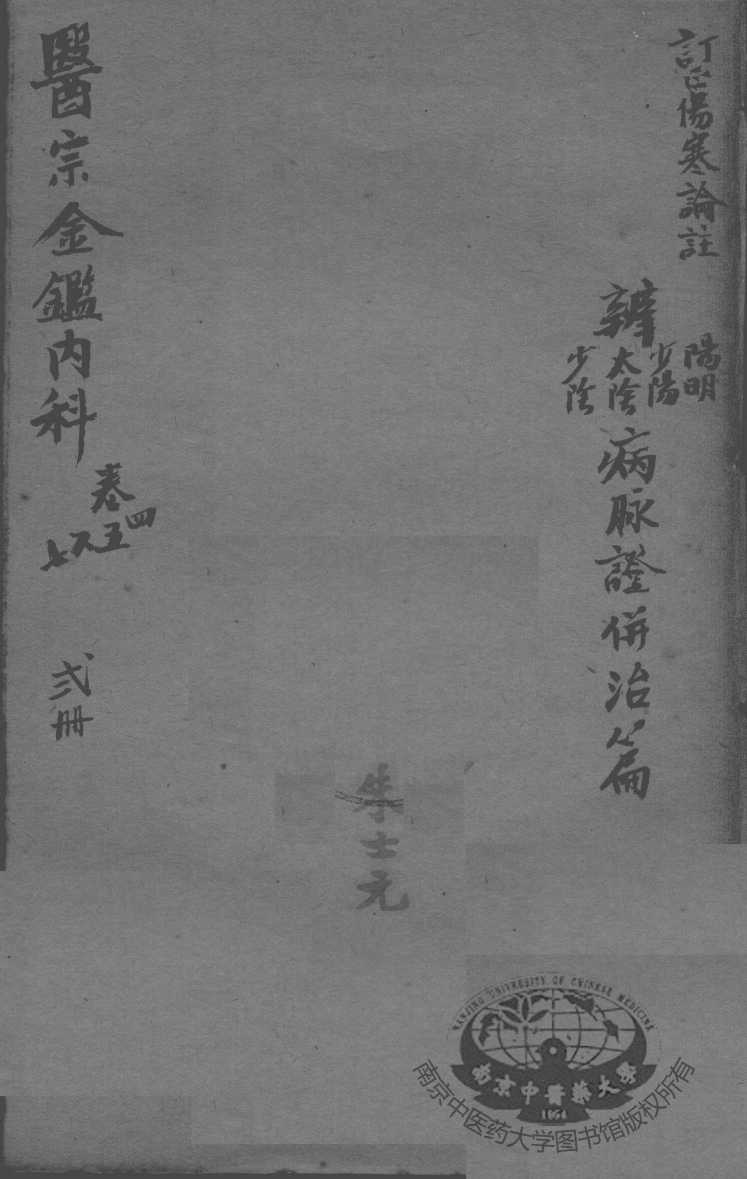 訂正傷寒論註
辨
陽明
少陽
太陰
少陰
病脉證併治篇
朱士元
醫宗金鑑內科
卷
四
五
六
七
弍册
NANJING UNIVERSITY OF CHINESE MEDICINE
南京中醫藥大學
1954
南京中医药大学图书馆版权所有